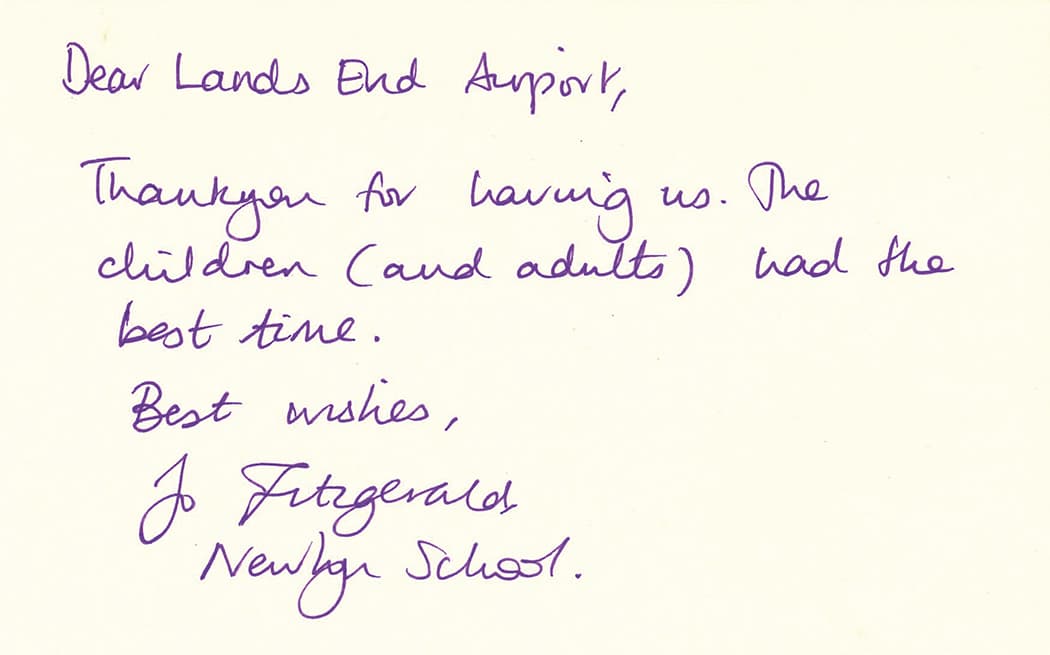 Dear Lands End Airport,
Thankyou for having us. The
children (and adults) had the
best time.
Best wishes,
Jo Fitzgerald
Newlyn School.